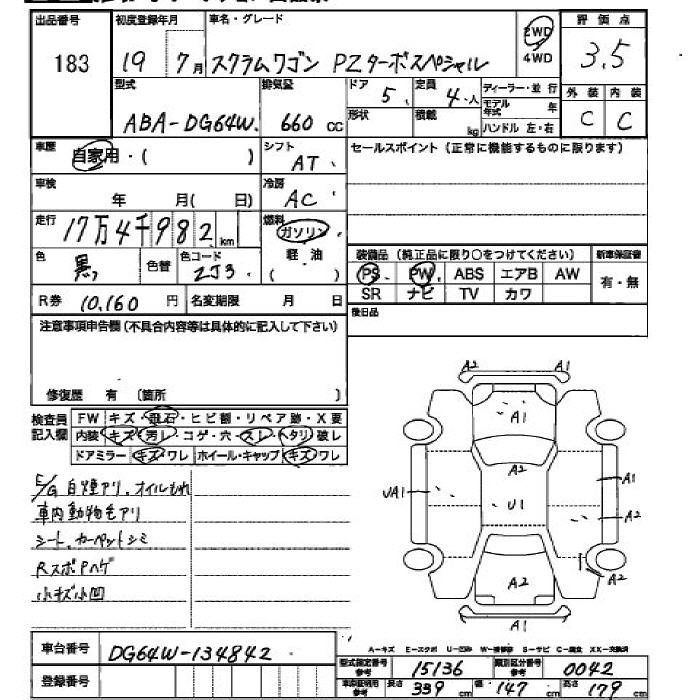 出品番号 初度登録年月 車名・グレード 評価点
183 19 7月 スクラムワゴン PZターボスペシャル 2WD 4WD 3.5
型式 排気量 ドア 定員 ディーラー・並行 外装 内装
ABA-DG64W 660 cc 5 4人 モデル年式 年 C C
形状 積載 kg ハンドル 左・右
車歴 自家用・( ) シフト AT セールスポイント (正常に機能するものに限ります)
車検 年 月( 日) 冷房 AC
走行 17万4千982km 燃料 ガソリン
色 黒 色替 色コード ZJ3 軽・油 ( ) 装備品 (純正品に限り○をつけてください) 新車保証書
PS PW ABS エアB AW 有・無
R券 10,160円 名変期限 月 日 SR ナビ TV カワ
注意事項申告欄 (不具合内容等は具体的に記入して下さい) 後日品
修復歴 有 (箇所 )
検査員記入欄 FW キズ・飛石・ヒビ割・リペア跡・X要
内装 キズ・汚レ・コゲ・穴・スレ・ヘタリ・破レ
ドアミラー キズ・ワレ ホイール・キャップ キズ・ワレ
E/G 白煙アリ、オイルもれ
車内動物毛アリ
シート、カーペットシミ
RスポPハゲ
小キズ小凹
A2 A1
A1
A2
UA1 U1 A1
A2
A2 A2
A-キズ E-エクボ U-凹み W-補修跡 S-サビ C-腐食 XX-交換済
車台番号 DG64W-134842 型式指定番号 参考 15136 類別区分番号 参考 0042
登録番号 車庫証明用 参考 長さ 339cm 幅 147cm 高さ 179cm